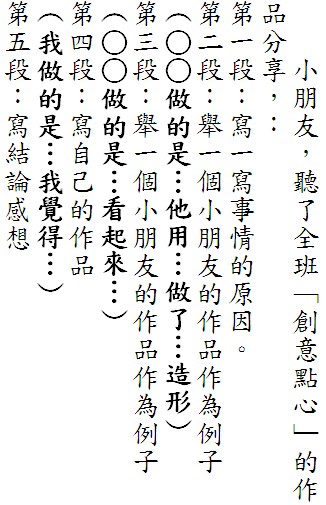 小朋友，聽了全班「創意點心」的作
品分享，：
第一段：寫一寫事情的原因。
第二段：舉一個小朋友的作品作為例子
（○○做的是…他用…做了…造形）
第三段：舉一個小朋友的作品作為例子
（○○做的是…看起來…）
第四段：寫自己的作品
（我做的是…我覺得…）
第五段：寫結論感想